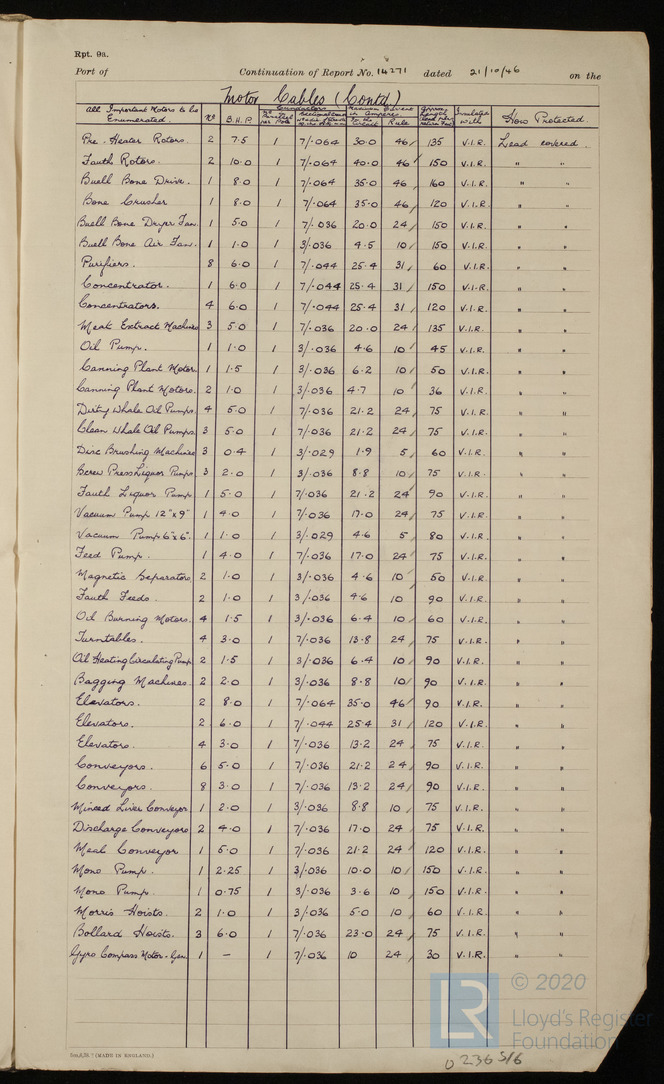 Rpt. 9a.
Port of Continuation of Report No. 14271 dated 21/10/46 on the
Motor Cables (Contd.)
All Important Motors to be Enumerated. No B.H.P. No Parallel per Pole Conductors Maximum Current in Amperes. In the Circuit Rule Approx. Length Insulated with How Protected.
Pre-Heater Rotors. 2 7.5 1 7/.064 30.0 46 135 V.I.R. Lead covered.
Fauth Rotors. 2 10.0 1 7/.064 40.0 46 150 V.I.R. " "
Buell Bone Drive. 1 8.0 1 7/.064 35.0 46 160 V.I.R. " "
Bone Crusher 1 8.0 1 7/.064 35.0 46 120 V.I.R. " "
Buell Bone Dryer Fan. 1 5.0 1 7/.036 20.0 24 150 V.I.R. " "
Buell Bone Air Fan. 1 1.0 1 3/.036 4.5 10 150 V.I.R. " "
Purifiers. 8 6.0 1 7/.044 25.4 31 60 V.I.R. " "
Concentrator. 1 6.0 1 7/.044 25.4 31 150 V.I.R. " "
Concentrators. 4 6.0 1 7/.044 25.4 31 120 V.I.R. " "
Meat Extract Machines 3 5.0 1 7/.036 20.0 24 135 V.I.R. " "
Oil Pump. 1 1.0 1 3/.036 4.6 10 45 V.I.R. " "
Canning Plant Motor 1 1.5 1 3/.036 6.2 10 50 V.I.R. " "
Canning Plant Motors. 2 1.0 1 3/.036 4.7 10 36 V.I.R. " "
Dirty Whale Oil Pumps. 4 5.0 1 7/.036 21.2 24 75 V.I.R. " "
Clean Whale Oil Pumps. 3 5.0 1 7/.036 21.2 24 75 V.I.R. " "
Disc Brushing Machines 3 0.4 1 3/.029 1.9 5 60 V.I.R. " "
Screw Press Liquor Pumps 3 2.0 1 3/.036 8.8 10 75 V.I.R. " "
Fauth Liquor Pump 1 5.0 1 7/.036 21.2 24 90 V.I.R. " "
Vacuum Pump 12" x 9" 1 4.0 1 7/.036 17.0 24 75 V.I.R. " "
Vacuum Pump 6" x 6" 1 1.0 1 3/.029 4.6 5 80 V.I.R. " "
Feed Pump. 1 4.0 1 7/.036 17.0 24 75 V.I.R. " "
Magnetic Separators 2 1.0 1 3/.036 4.6 10 50 V.I.R. " "
Fauth Feeds. 2 1.0 1 3/.036 4.6 10 90 V.I.R. " "
Oil Burning Motors. 4 1.5 1 3/.036 6.4 10 60 V.I.R. " "
Turntables. 4 3.0 1 7/.036 13.8 24 75 V.I.R. " "
Oil Heating Circulating Pump 2 1.5 1 3/.036 6.4 10 90 V.I.R. " "
Bagging Machines. 2 2.0 1 3/.036 8.8 10 90 V.I.R. " "
Elevators. 2 8.0 1 7/.064 35.0 46 90 V.I.R. " "
Elevators. 2 6.0 1 7/.044 25.4 31 120 V.I.R. " "
Elevators 4 3.0 1 7/.036 13.2 24 75 V.I.R. " "
Conveyors. 6 5.0 1 7/.036 21.2 24 90 V.I.R. " "
Conveyors. 8 3.0 1 7/.036 13.2 24 90 V.I.R. " "
Minced Liver Conveyor 1 2.0 1 3/.036 8.8 10 75 V.I.R. " "
Discharge Conveyors 2 4.0 1 7/.036 17.0 24 75 V.I.R. " "
Meal Conveyor 1 5.0 1 7/.036 21.2 24 120 V.I.R. " "
Mono Pump. 1 2.25 1 3/.036 10.0 10 150 V.I.R. " "
Mono Pump. 1 0.75 1 3/.036 3.6 10 150 V.I.R. " "
Morris Hoists. 2 1.0 1 3/.036 5.0 10 60 V.I.R. " "
Bollard Hoists. 3 6.0 1 7/.036 23.0 24 75 V.I.R. " "
Gyro Compass Motor-Gen. 1 - 1 7/.036 10 24 30 V.I.R. " "
© 2020
LR
Lloyd's Register
Foundation
(MADE IN ENGLAND.)
0236 5/6